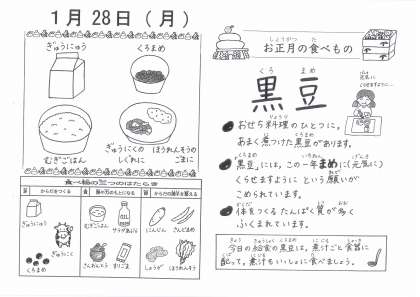 1月28日(月)
ぎゅうにゅう
くろまめ
むぎごはん
ぎゅうにくの
しぐれに
ほうれんそうの
ごまに
食べ物の三つのはたらき
からだをつくる
熱や力のもとになる
からだの調子を整える
ぎゅうにゅう
ぎゅうにく
くろまめ
むぎごはん
サラダあぶら
さんおんとう
すりごま
にんじん
さんどまめ
しょうが
ほうれんそう
しょうがつ た
お正月の食べもの
くろ まめ
黒豆
りょうり
おせち料理のひとつに。
くろまめ
あまく煮つけた黒豆があります。
くろまめ
黒豆には、この一年まめに(元気に)
くらせますようにという願いが
こめられています。
からだ
体をつくるたんぱく質が多く
ふくまれています。
今日の給食の黒豆は、煮汁ごと食器に
配って。煮汁もいっしょに食べましょう。